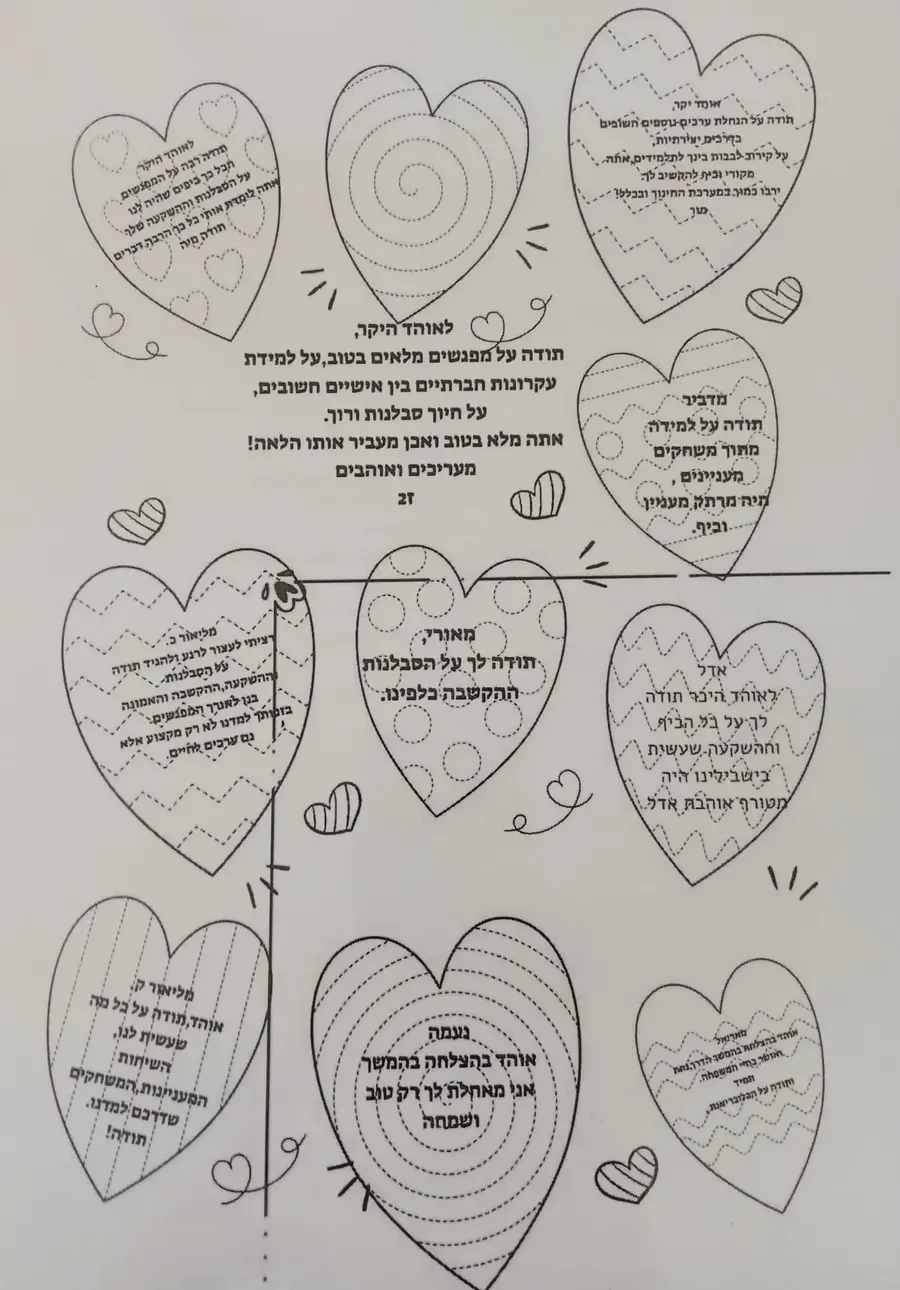 לאוהד היקר
תודה רבה על המפגשים
הכל כך כיפים שהיה לנו
על הסבלנות וההשקעה שלך
אתה לימדת אותי כל כך הרבה דברים
תודה מיה
אוהד יקר,
תודה על הנחלת ערכים נוספים חשובים
בדרכים יצירתיות,
על קירוב לבבות בינך לתלמידים,אתה
מקורי וכיף להקשיב לך
ירבו כמוך במערכת החינוך ובכלל!
לאוהד היקר,
תודה על מפגשים מלאים בטוב,על למידת
עקרונות חברתיים בין אישיים חשובים,
על חיוך סבלנות ורוך.
אתה מלא בטוב ואכן מעביר אותו הלאה!
מעריכים ואוהבים
ז2
מדביר
תודה על למידה
מתוך משחקים
מעניינים ,
היה מרתק מעניין
וכיף.
מליאור כ.
רציתי לעצור לרגע ולהגיד תודה
על הסבלנות
וההשקעה,ההקשבה והאמונה
בנו לאורך המפגשים.
בזכותך למדנו לא רק מקצוע אלא
גם ערכים לחיים.
מאורי,
תודה לך על הסבלנות
ההקשבה כלפינו.
אדל
לאוהד היכר תודה
לך על כל הכיף
וההשקעה שעשית
בישבילינו היה
מטורף אוהבת אדל
מליאור ק.
אוהד,תודה על כל מה
שעשית לנו,
השיחות
המעניינות,המשחקים
שדרכם למדנו.
תודה!
נעמה
אוהד בהצלחה בהמשך
אני מאחלת לך רק טוב
ושמחה
מאריאל
אוהד בהצלחה בהמשך הדרך,נחת
ואושר בחיי המשפחה.
תמיד
ותודה על